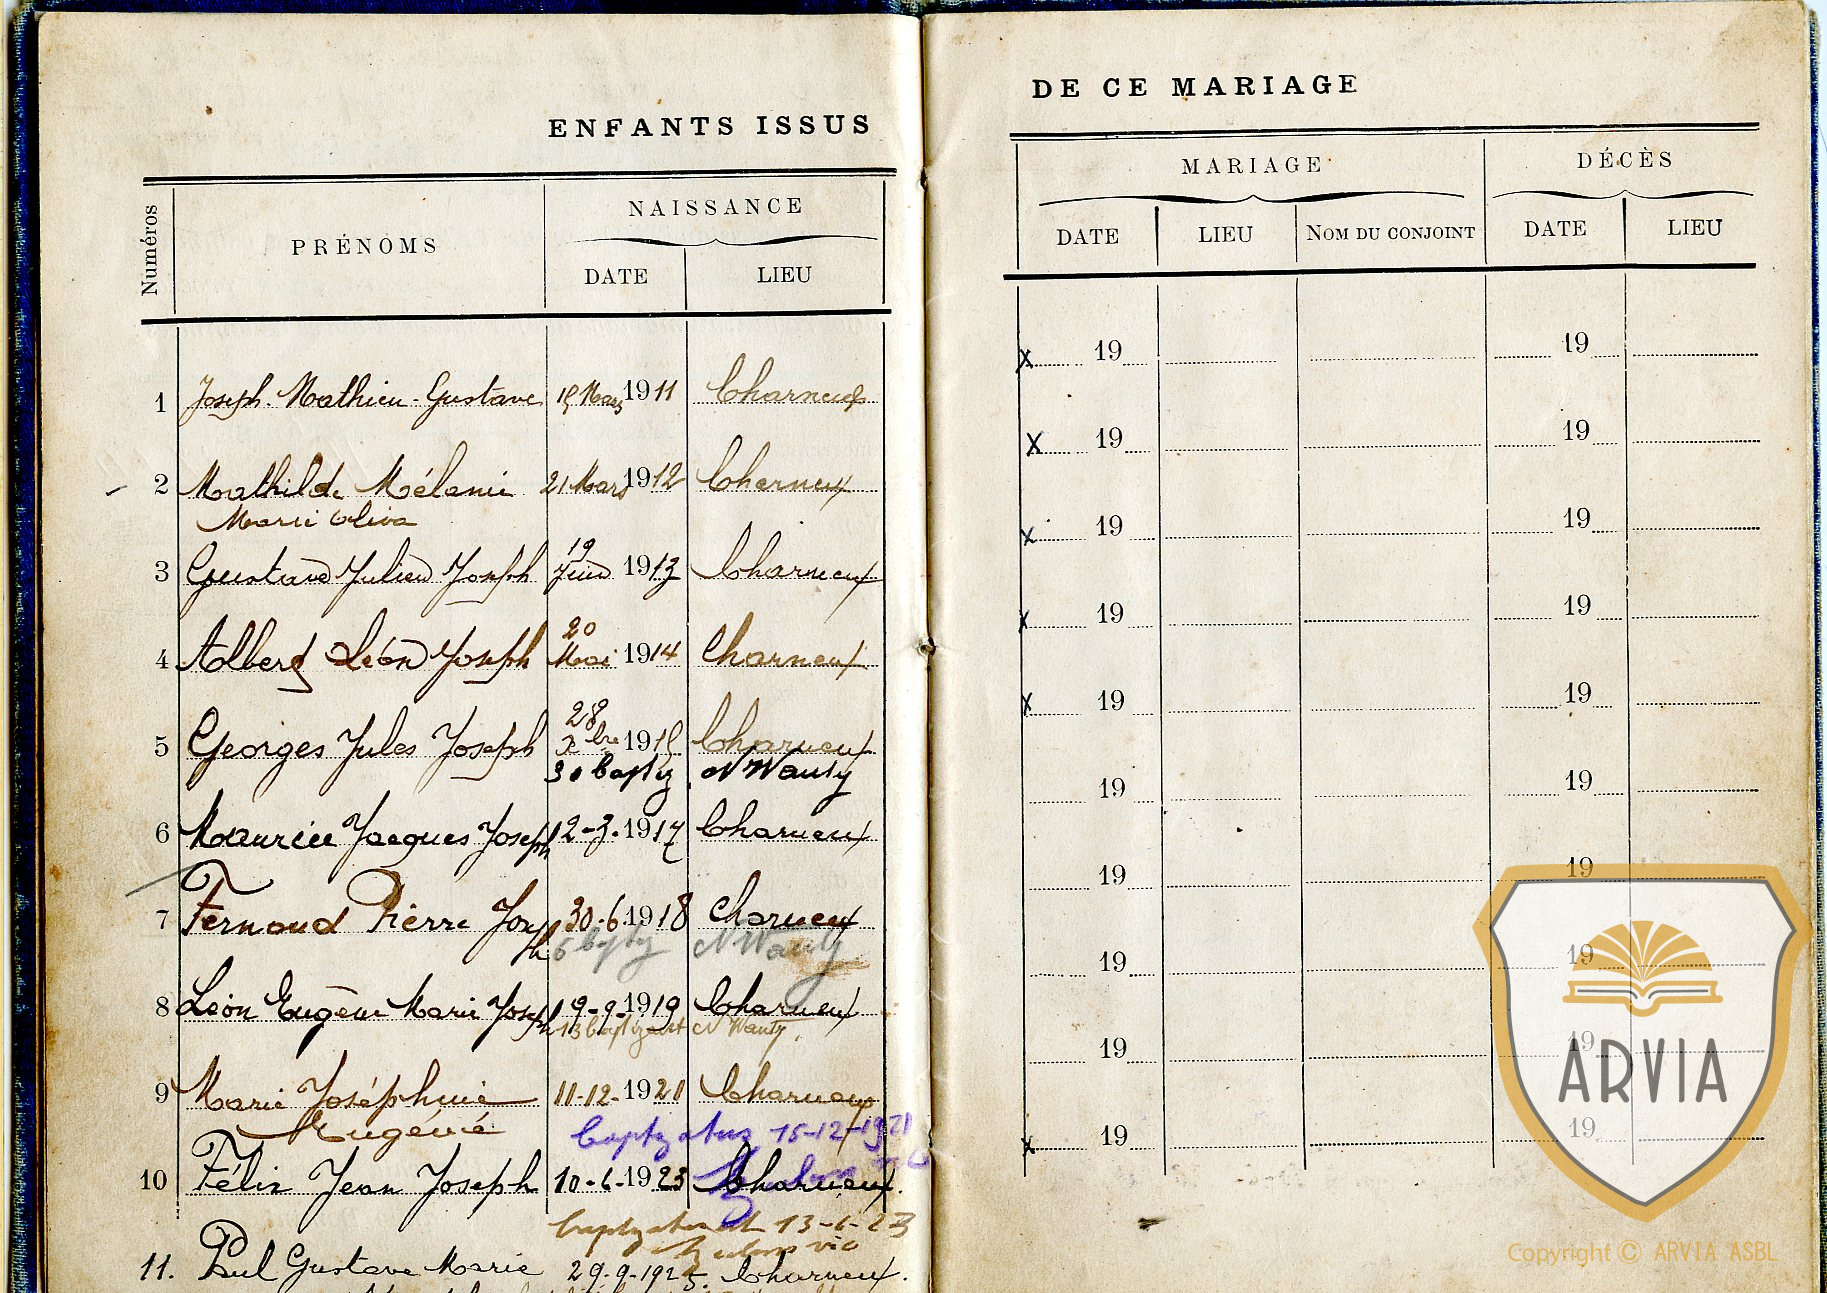 ENFANTS ISSUS
Numéros
PRÉNOMS
NAISSANCE
DATE
LIEU
1 Joseph Mathieu Gustave 15 Mars 1911 Charneux
2 Mathilde Mélanie 21 Mars 1912 Charneux
Marie Oliva
3 Gustave Julien Joseph 19 Juin 1913 Charneux
4 Albert Léon Joseph 20 Mai 1914 Charneux
5 Georges Jules Joseph 28 Xbre 1915 Charneux
30 baptz N Wauty
6 Maurice Jacques Joseph 12-3-1917 Charneux
7 Fernand Pierre Joseph 30-6-1918 Charneux
N Wauty
8 Léon Eugène Marie Joseph 9-9-1919 Charneux
13 N Wauty
9 Marie Joséphine 11-12-1921 Charneux
Eugénie
baptzatus 15-12-1921
10 Félix Jean Joseph 10-6-1923 Charneux
baptzatus est 13-6-23
vic
11. Paul Gustave Marie 29-9-1925. Charneux.
DE CE MARIAGE
MARIAGE
DÉCÈS
DATE
LIEU
NOM DU CONJOINT
DATE
LIEU
x 19 19
x 19 19
x 19 19
x 19 19
x 19 19
19 19
19 19
19 19
19 19
x 19 19
ARVIA
Copyright © ARVIA ASBL